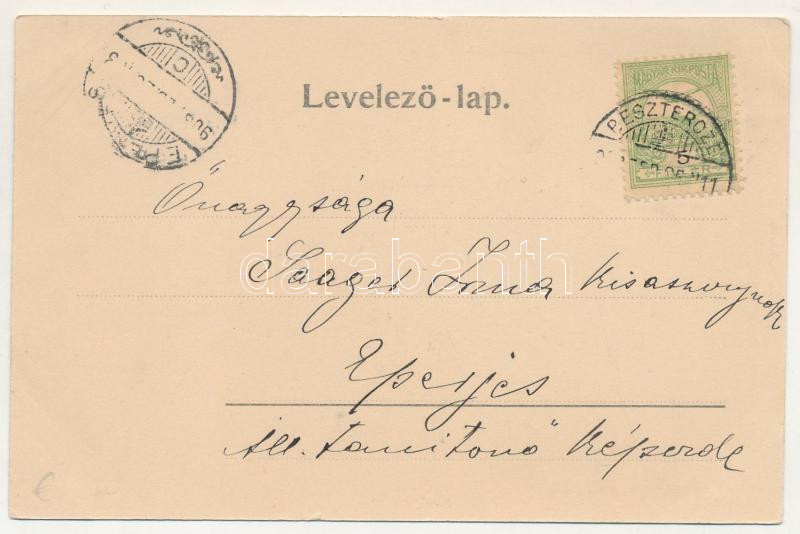 Levelező-lap.
MAGYAR KIR. POSTA
PESZTERCZE
5
EPERJES
906
C
Őnagysága
Saager Irma kisasszonynak
Eperjes
Áll. tanítónő képezde
darabanth
€